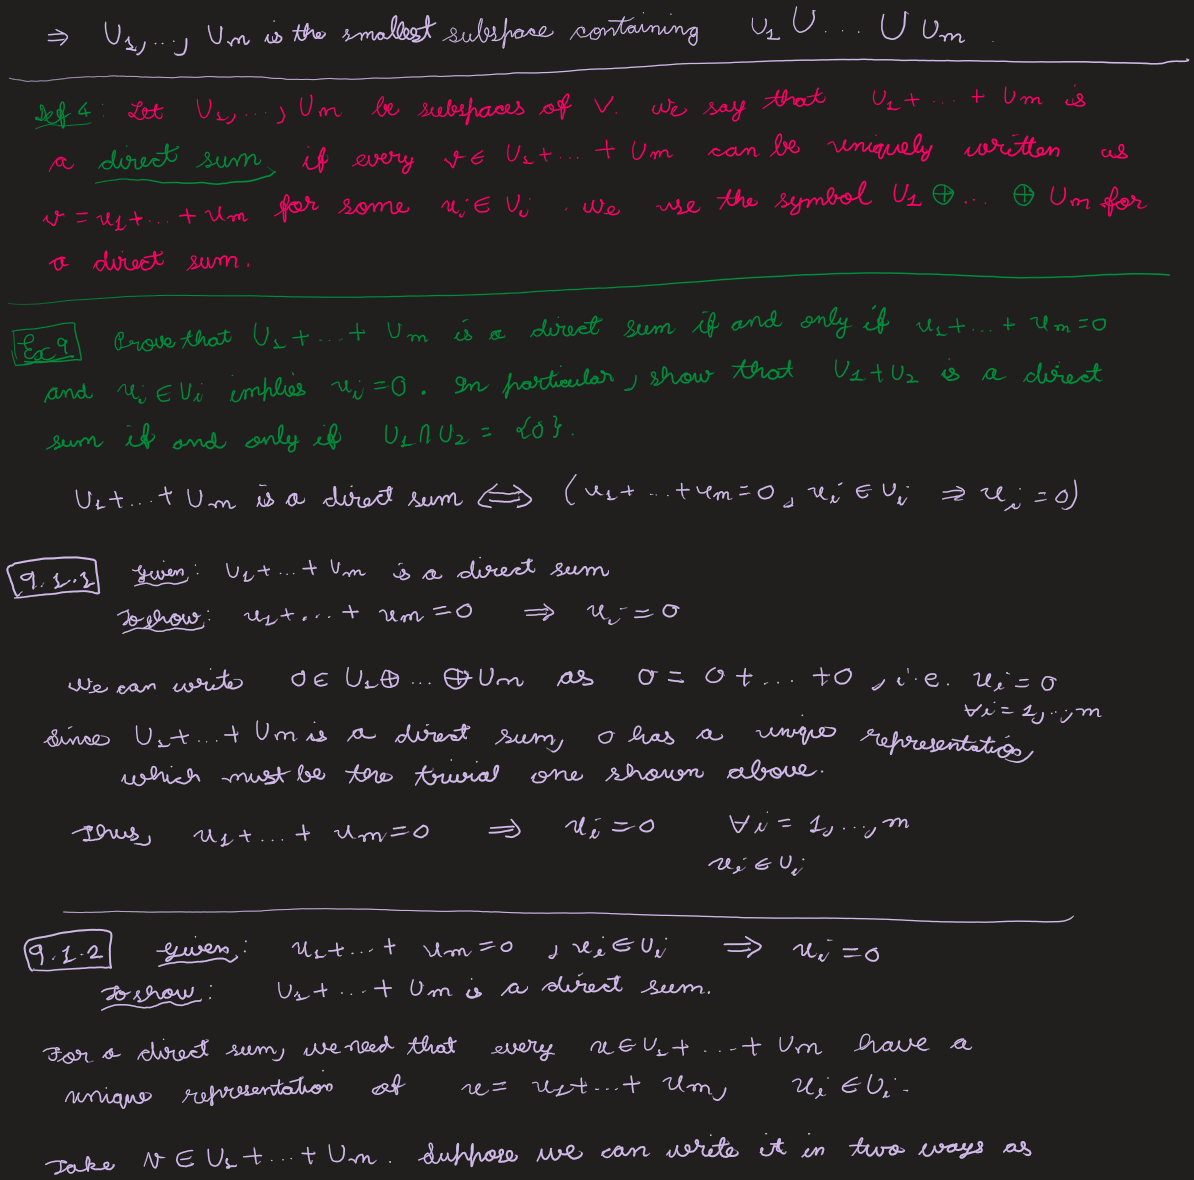 ⇒ U₁,..., Um is the smallest subspace containing U₁ ∪ ... ∪ Um.
Def 4: Let U₁,..., Um be subspaces of V. We say that U₁ + ... + Um is
a direct sum, if every v ∈ U₁ + ... + Um can be uniquely written as
v = u₁ + ... + um for some ui ∈ Ui. We use the symbol U₁ ⊕ ... ⊕ Um for
a direct sum.
Ex 9 Prove that U₁ + ... + Um is a direct sum if and only if u₁ + ... + um = 0
and ui ∈ Ui implies ui = 0. In particular, show that U₁ + U₂ is a direct
sum if and only if U₁ ∩ U₂ = {0}.
U₁ + ... + Um is a direct sum ⟺ (u₁ + ... + um = 0, ui ∈ Ui ⇒ ui = 0)
9.1.1 Given: U₁ + ... + Um is a direct sum
To show: u₁ + ... + um = 0 ⇒ ui = 0
We can write 0 ∈ U₁ ⊕ ... ⊕ Um as 0 = 0 + ... + 0, i.e. ui = 0
∀i = 1,..,m
Since U₁ + ... + Um is a direct sum, 0 has a unique representation,
which must be the trivial one shown above.
Thus, u₁ + ... + um = 0 ⇒ ui = 0 ∀i = 1,...,m
ui ∈ Ui
9.1.2 Given: u₁ + ... + um = 0, ui ∈ Ui ⇒ ui = 0
To show: U₁ + ... + Um is a direct sum.
For a direct sum, we need that every u ∈ U₁ + ... + Um have a
unique representation of u = u₁ + ... + um, ui ∈ Ui.
Take v ∈ U₁ + ... + Um. Suppose we can write it in two ways as